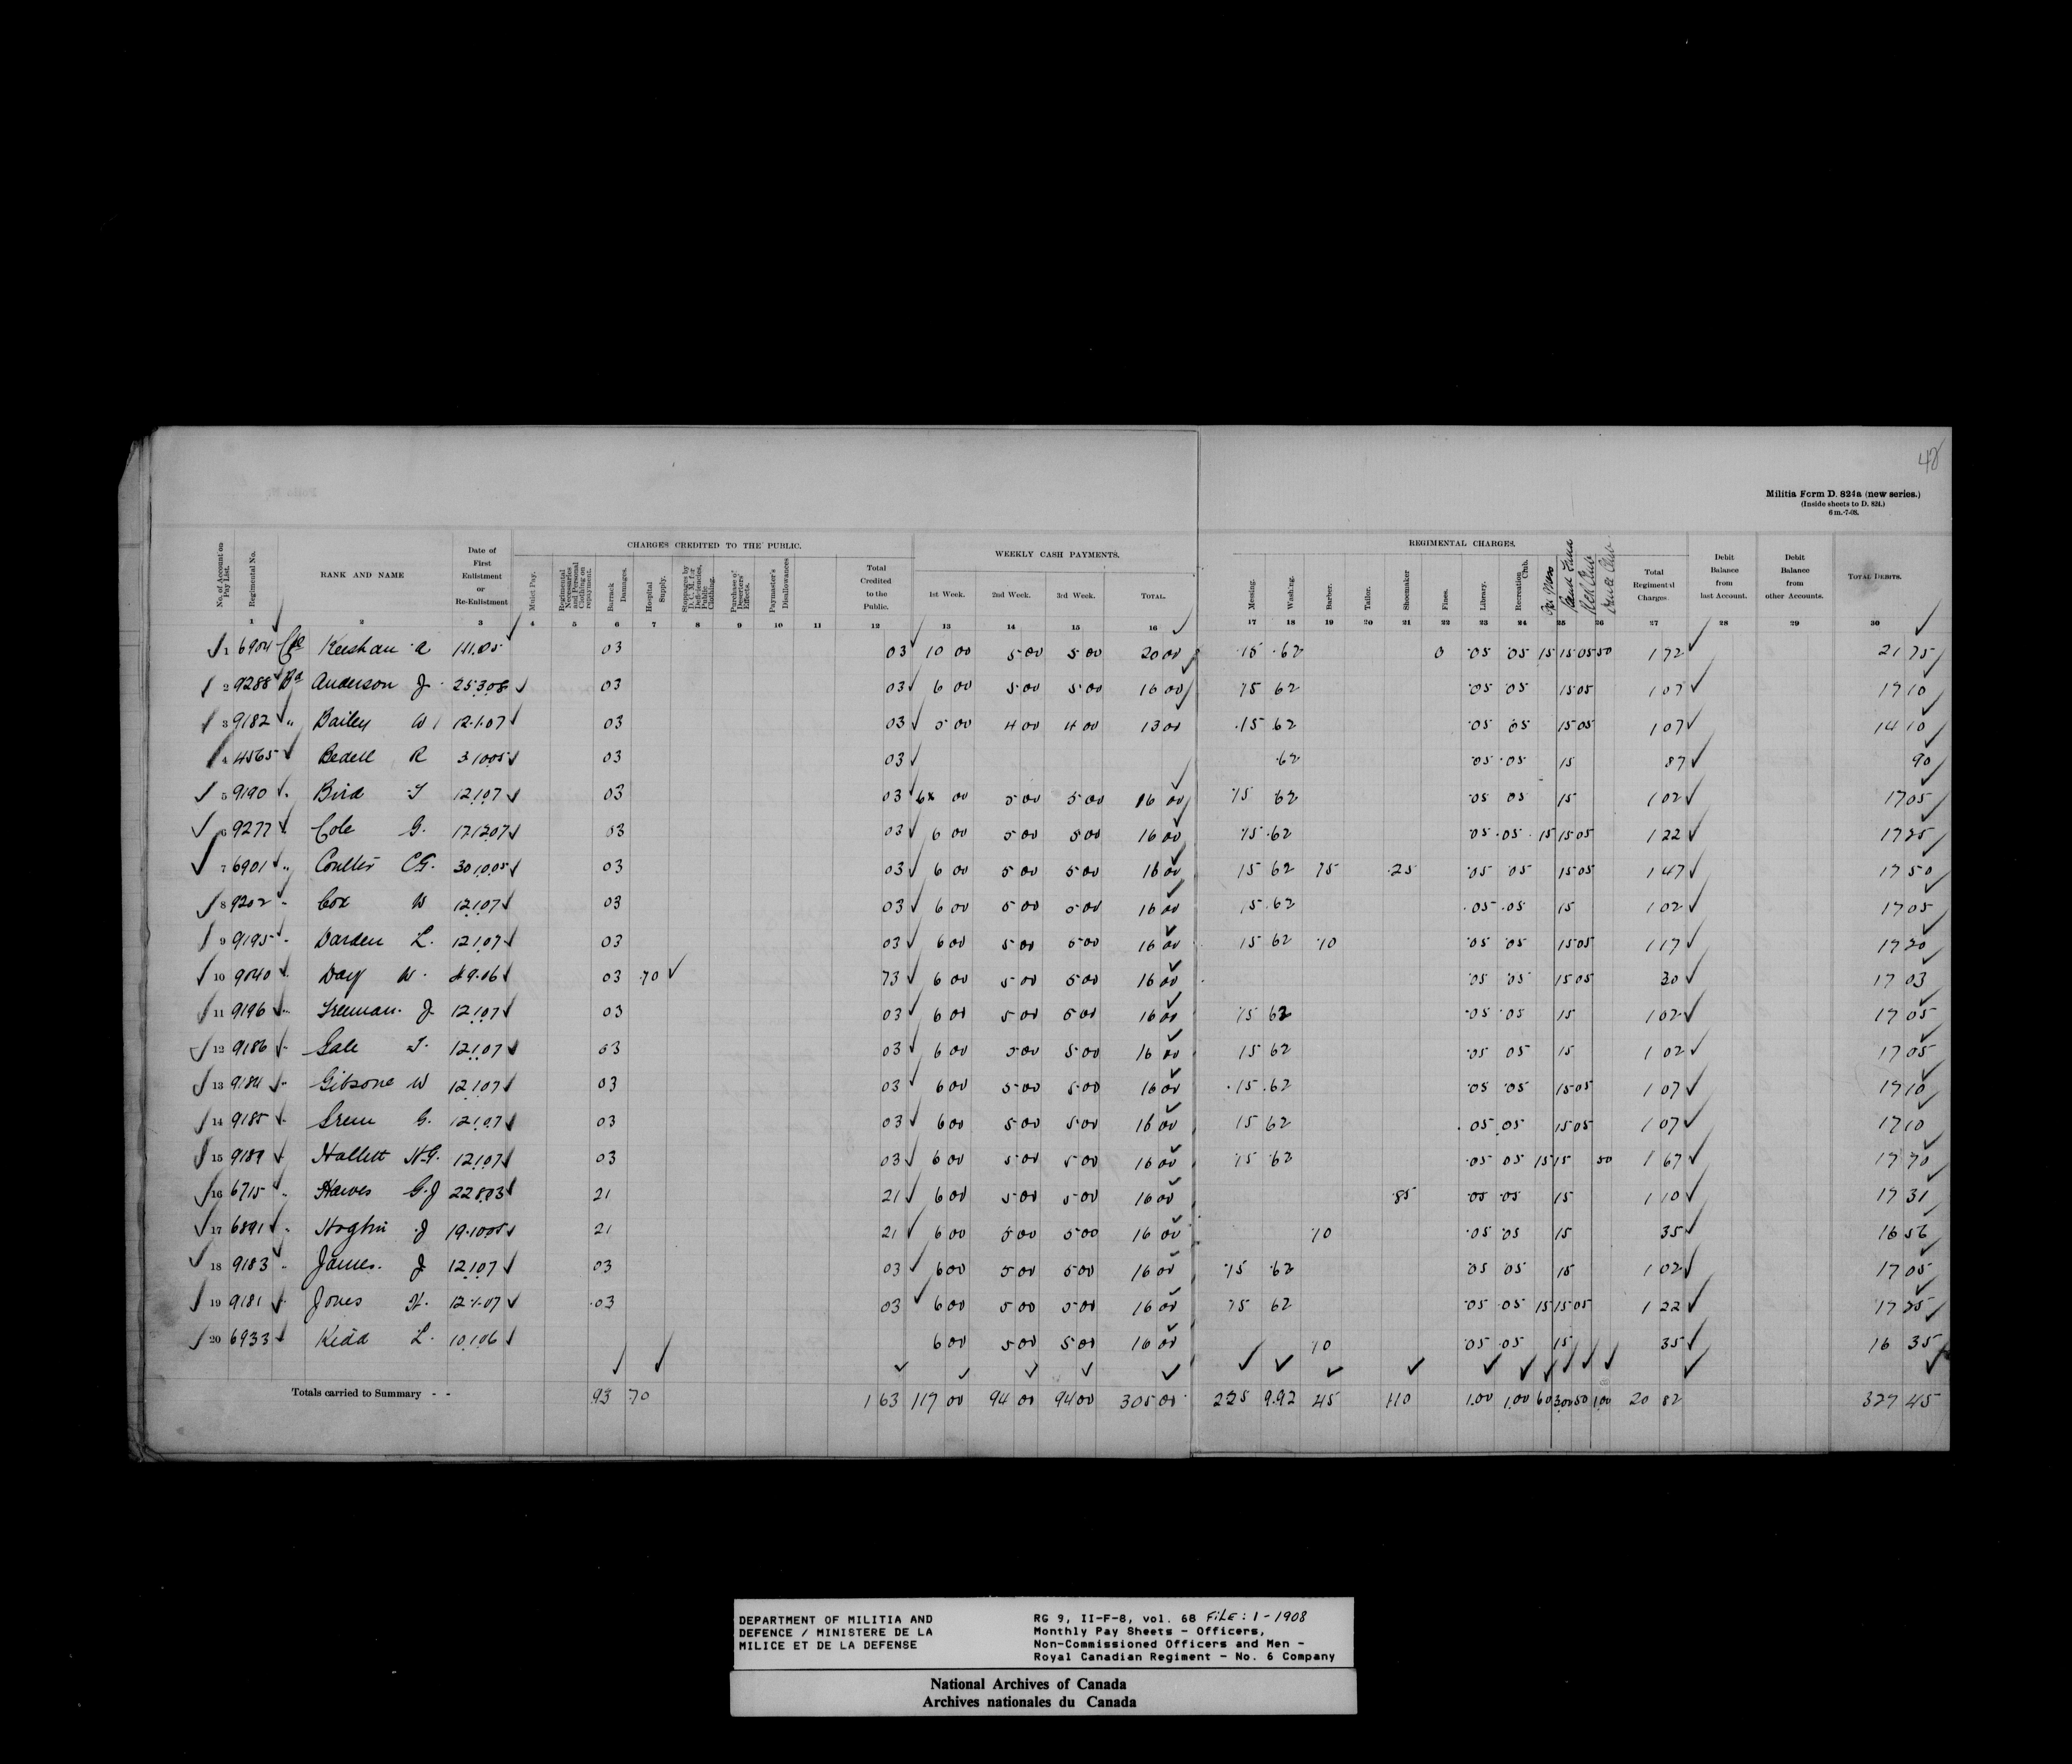 48
Militia Form D. 824a (new series.)
(Inside sheets to D. 824.)
6 m.-7-08.
CHARGES CREDITED TO THE PUBLIC. WEEKLY CASH PAYMENTS. REGIMENTAL CHARGES.
No. of Account on Pay List. Regimental No. RANK AND NAME Date of First Enlistment or Re-Enlistment Mulct Pay. Regimental Necessaries and Personal Clothing on repayment. Barrack Damages. Hospital Supply. Stoppages by D.C.M. for Deficiencies, Public Clothing. Purchase of Deserters' Effects. Paymaster's Disallowances Total Credited to the Public. 1st Week. 2nd Week. 3rd Week. TOTAL. Messing. Washing. Barber. Tailor. Shoemaker Fines. Library. Recreation Club. Band Fund Dance Club Total Regimental Charges. Debit Balance from last Account. Debit Balance from other Accounts. TOTAL DEBITS.
1 2 3 4 5 6 7 8 9 10 11 12 13 14 15 16 17 18 19 20 21 22 23 24 25 26 27 28 29 30
1 6904 Keeshan A 03 03 10 00 5 00 5 00 20 00 .15 .62 0 .05 .05 15 15 05 50 1 72 21 75
2 9288 Anderson J 25.3.08 03 03 6 00 5 00 5 00 16 00 15 62 .05 05 15 05 1 07 17 10
3 9182 " Bailey W 12.1.07 03 03 5 00 4 00 4 00 13 00 .15 62 05 05 15 05 1 07 14 10
4 4565 Bedell R 3.10.05 03 03 .62 .05 .05 15 87 90
5 9190 " Bird 12.1.07 03 03 6 00 5 00 5 00 16 00 15 62 .05 05 15 1 02 17 05
6 9277 Cole G. 17.12.07 03 03 6 00 5 00 5 00 16 00 15 .62 .05 .05 15 15 05 1 22 17 25
7 6901 " Coulter C.G. 30.10.05 03 03 6 00 5 00 5 00 16 00 15 62 15 .25 .05 .05 15 05 1 47 17 50
8 9202 " Cox W 12.1.07 03 03 6 00 5 00 5 00 16 00 15 .62 .05 .05 15 1 02 17 05
9 9195 " Darden L. 12.1.07 03 03 6 00 5 00 5 00 16 00 15 62 .10 .05 .05 15 05 1 17 17 20
10 9040 Day W. 4.9.06 03 .70 73 6 00 5 00 5 00 16 00 .05 .05 15 05 30 17 03
11 9196 " Freeman. J 12.1.07 03 03 6 00 5 00 5 00 16 00 15 62 .05 .05 15 1 02 17 05
12 9186 " Gale 12.1.07 03 03 6 00 5 00 5 00 16 00 15 62 .05 05 15 1 02 17 05
13 9184 " Gibsone W 12.1.07 03 03 6 00 5 00 5 00 16 00 .15 .62 .05 .05 15 05 1 07 17 10
14 9185 " G. 12.1.07 03 03 6 00 5 00 5 00 16 00 15 62 .05 .05 15 05 1 07 17 10
15 9189 Hallett H.G. 12.1.07 03 03 6 00 5 00 5 00 16 00 15 .62 .05 05 15 15 50 1 67 17 70
16 6715 " Hawes G.J 22.8.03 21 21 6 00 5 00 5 00 16 00 .85 .05 .05 15 1 10 17 31
17 6891 " J 19.10.05 21 21 6 00 5 00 5 00 16 00 10 .05 05 15 35 16 56
18 9183 " James. J 12.1.07 03 03 6 00 5 00 5 00 16 00 .15 .62 05 05 15 1 02 17 05
19 9181 " Jones H. 12.1.07 .03 03 6 00 5 00 5 00 16 00 15 62 .05 .05 15 15 05 1 22 17 25
20 6933 Kidd L. 10.1.06 6 00 5 00 5 00 16 00 10 .05 .05 15 35 16 35
Totals carried to Summary - - .93 70 1 63 117 00 94 00 94 00 305 00 2 25 9.92 45 1.10 1.00 1.00 60 3.00 50 1.00 20 82 327 45
DEPARTMENT OF MILITIA AND
DEFENCE / MINISTERE DE LA
MILICE ET DE LA DEFENSE
RG 9, II-F-8, vol. 68 FILE: 1-1908
Monthly Pay Sheets - Officers,
Non-Commissioned Officers and Men -
Royal Canadian Regiment - No. 6 Company
National Archives of Canada
Archives nationales du Canada